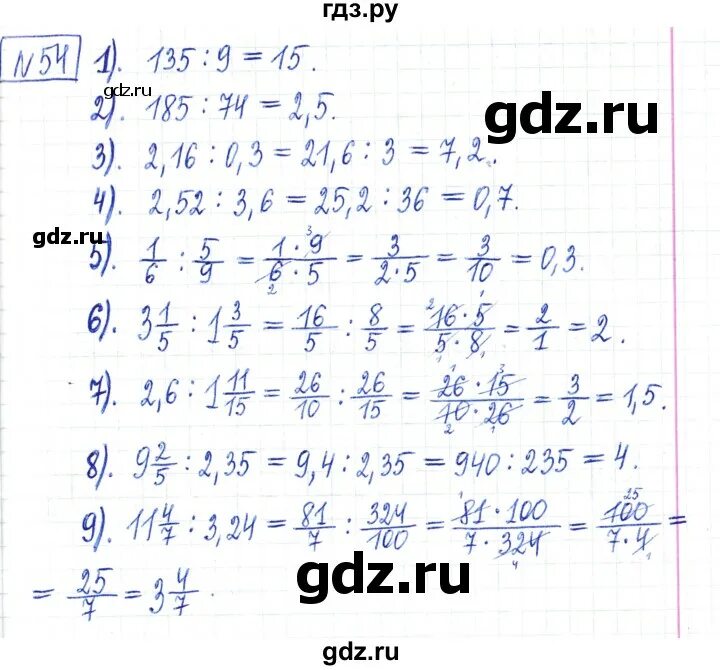 гдз.ру
№54 1). 135 : 9 = 15.
gdz.ru
2). 185 : 74 = 2,5.
gdz.ru
3). 2,16 : 0,3 = 21,6 : 3 = 7,2.
4). 2,52 : 3,6 = 25,2 : 36 = 0,7.
gdz.ru
5). 1/6 : 5/9 = 1·9/6·5 = 3/2·5 = 3/10 = 0,3.
6). 3 1/5 : 1 3/5 = 16/5 : 8/5 = 16·5/5·8 = 2/1 = 2.
7). 2,6 : 1 11/15 = 26/10 : 26/15 = 26·15/10·26 = 3/2 = 1,5.
8). 9 2/5 : 2,35 = 9,4 : 2,35 = 940 : 235 = 4.
9). 11 4/7 : 3,24 = 81/7 : 324/100 = 81·100/7·324 = 100/7·4 =
= 25/7 = 3 4/7.
gdz.ru
gdz.ru